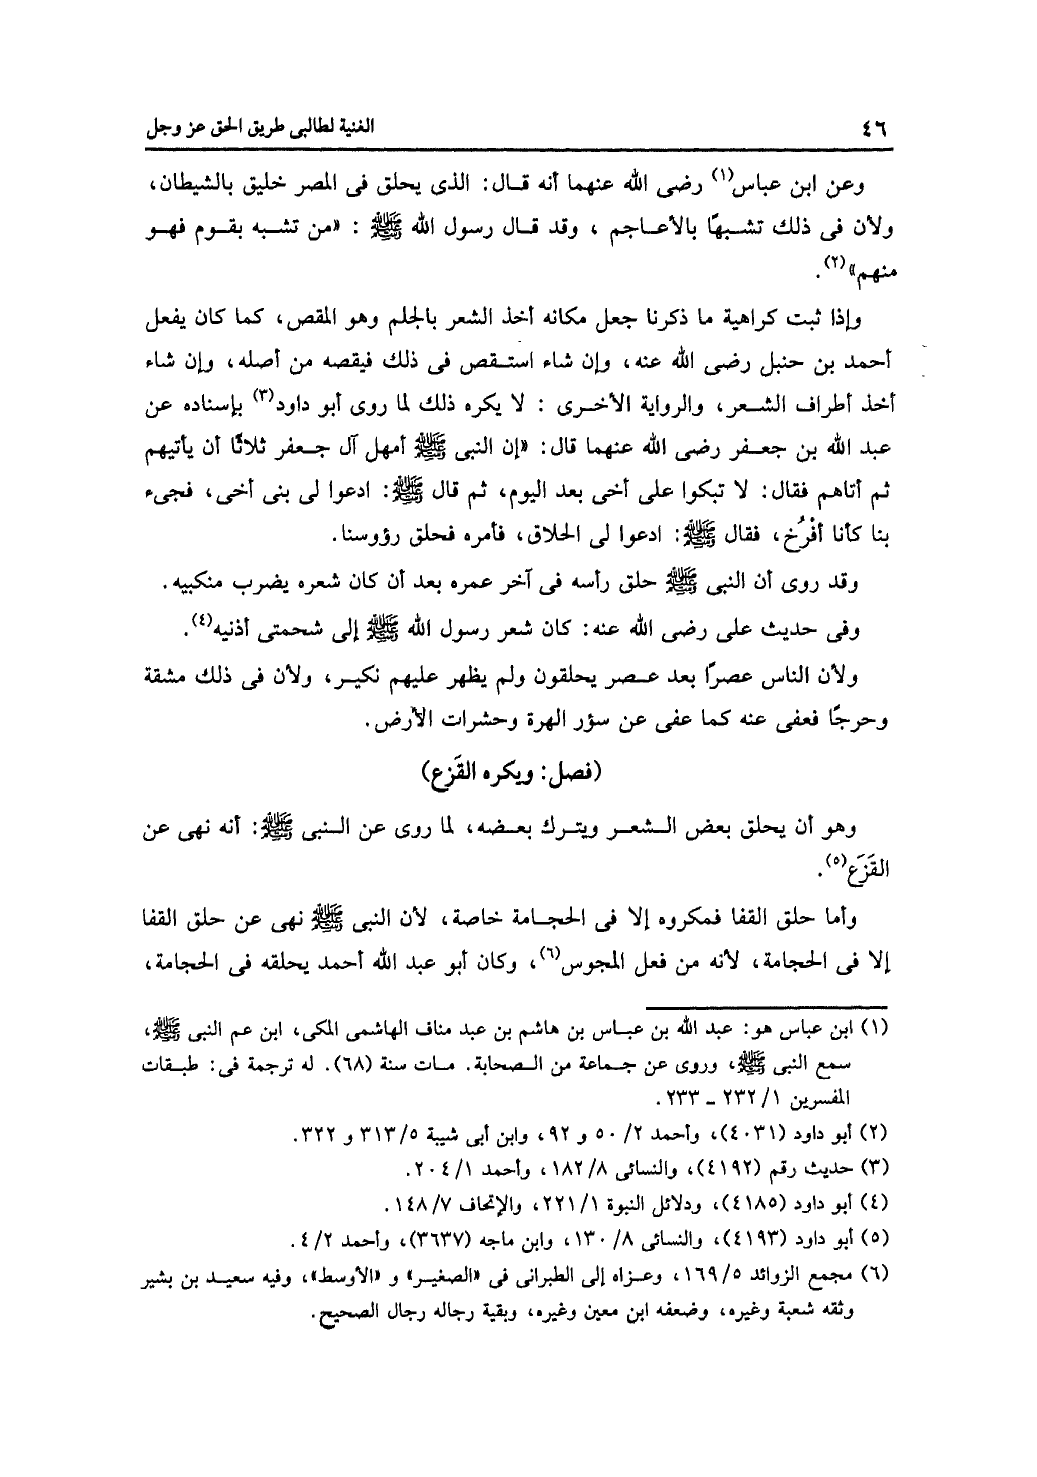 ٤٦ الغنية لطالبى طريق الحق عز وجل
وعن ابن عباس(١) رضى الله عنهما أنه قال: الذى يحلق فى المصر خليق بالشيطان،
ولأن فى ذلك تشبهًا بالأعاجم ، وقد قال رسول الله ﷺ : «من تشبه بقوم فهو
منهم»(٢).
وإذا ثبت كراهية ما ذكرنا جعل مكانه أخذ الشعر بالجلم وهو المقص، كما كان يفعل
أحمد بن حنبل رضى الله عنه، وإن شاء استقص فى ذلك فيقصه من أصله، وإن شاء
أخذ أطراف الشعر، والرواية الأخرى : لا يكره ذلك لما روى أبو داود(٣) بإسناده عن
عبد الله بن جعفر رضى الله عنهما قال: «إن النبى ﷺ أمهل آل جعفر ثلاثًا أن يأتيهم
ثم أتاهم فقال: لا تبكوا على أخى بعد اليوم، ثم قال ﷺ: ادعوا لى بنى أخى، فجىء
بنا كأنا أفْرُخ، فقال ﷺ: ادعوا لى الحلاق، فأمره فحلق رؤوسنا.
وقد روى أن النبى ﷺ حلق رأسه فى آخر عمره بعد أن كان شعره يضرب منكبيه.
وفى حديث على رضى الله عنه: كان شعر رسول الله ﷺ إلى شحمتى أذنيه(٤).
ولأن الناس عصرًا بعد عصر يحلقون ولم يظهر عليهم نكير، ولأن فى ذلك مشقة
وحرجًا فعفى عنه كما عفى عن سؤر الهرة وحشرات الأرض.
(فصل: ويكره القَزع)
وهو أن يحلق بعض الشعر ويترك بعضه، لما روى عن النبى ﷺ: أنه نهى عن
القَزَع(٥).
وأما حلق القفا فمكروه إلا فى الحجامة خاصة، لأن النبى ﷺ نهى عن حلق القفا
إلا فى الحجامة، لأنه من فعل المجوس(٦)، وكان أبو عبد الله أحمد يحلقه فى الحجامة،
(١) ابن عباس هو: عبد الله بن عباس بن هاشم بن عبد مناف الهاشمى المكى، ابن عم النبى ﷺ،
سمع النبى ﷺ، وروى عن جماعة من الصحابة. مات سنة (٦٨). له ترجمة فى: طبقات
المفسرين ١/ ٢٣٢ ـ ٢٣٣ .
(٢) أبو داود (٤٠٣١)، وأحمد ٢/ ٥٠ و ٩٢، وابن أبى شيبة ٣١٣/٥ و ٣٢٢.
(٣) حديث رقم (٤١٩٢)، والنسائى ٨/ ١٨٢، وأحمد ١/ ٢٠٤.
(٤) أبو داود (٤١٨٥)، ودلائل النبوة ١/ ٢٢١، والإتحاف ٧/ ١٤٨.
(٥) أبو داود (٤١٩٣)، والنسائى ٨/ ١٣٠، وابن ماجه (٣٦٣٧)، وأحمد ٢/ ٤.
(٦) مجمع الزوائد ٥/ ١٦٩، وعزاه إلى الطبرانى فى «الصغير» و «الأوسط»، وفيه سعيد بن بشير
وثقه شعبة وغيره، وضعفه ابن معين وغيره، وبقية رجاله رجال الصحيح.